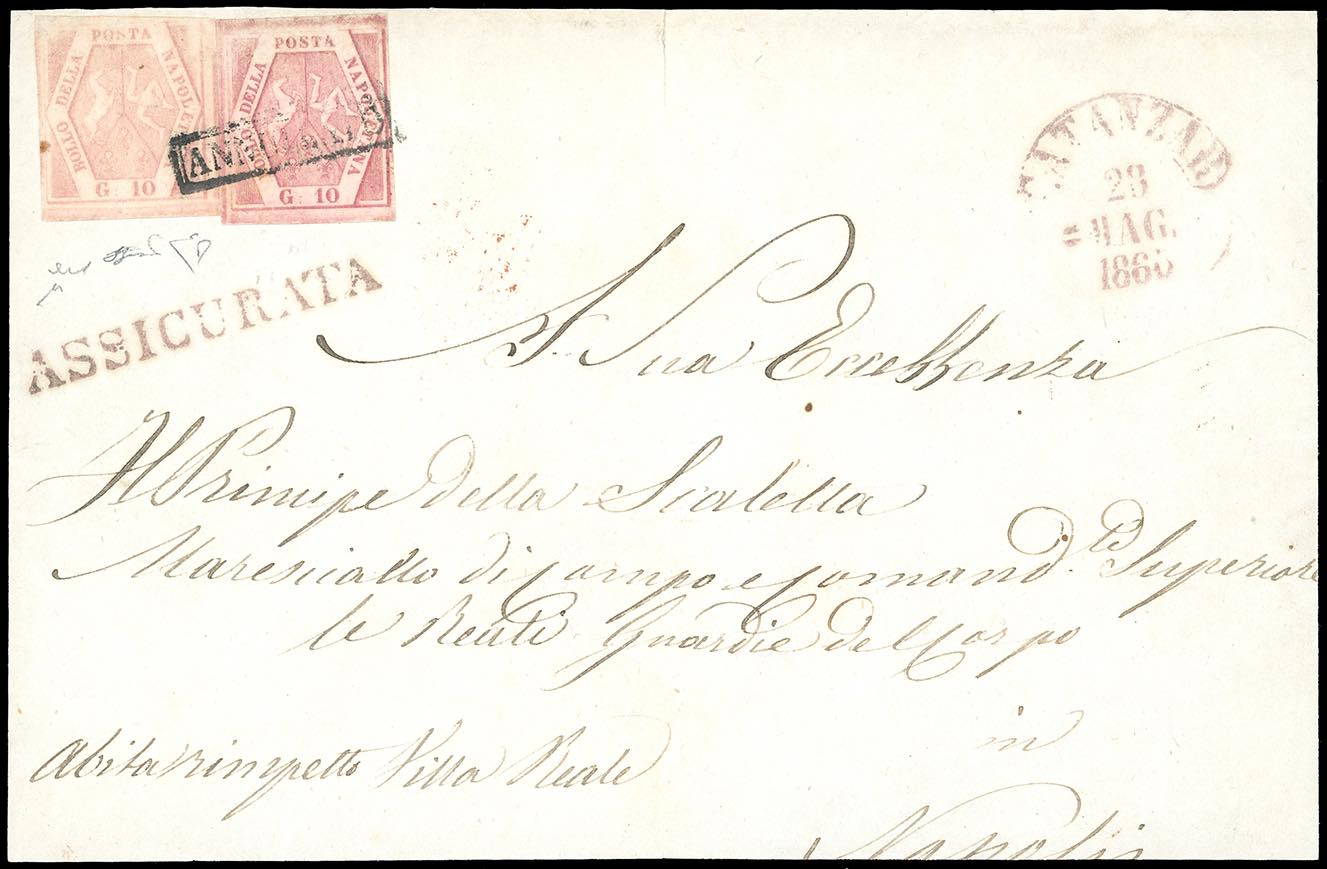 BOLLO DELLA POSTA NAPOLET
G: 10
BOLLO DELLA POSTA NAPOLETANA
G: 10
ANNULLATO
ASSICURATA
CATANZAR
28
MAG.
1860
A Sua Eccellenza
Il Principe della Scaletta
Maresciallo di Campo e Comand.te Superiore
le Reali Guardie del Corpo
in
Napoli
Abita rimpetto Villa Reale